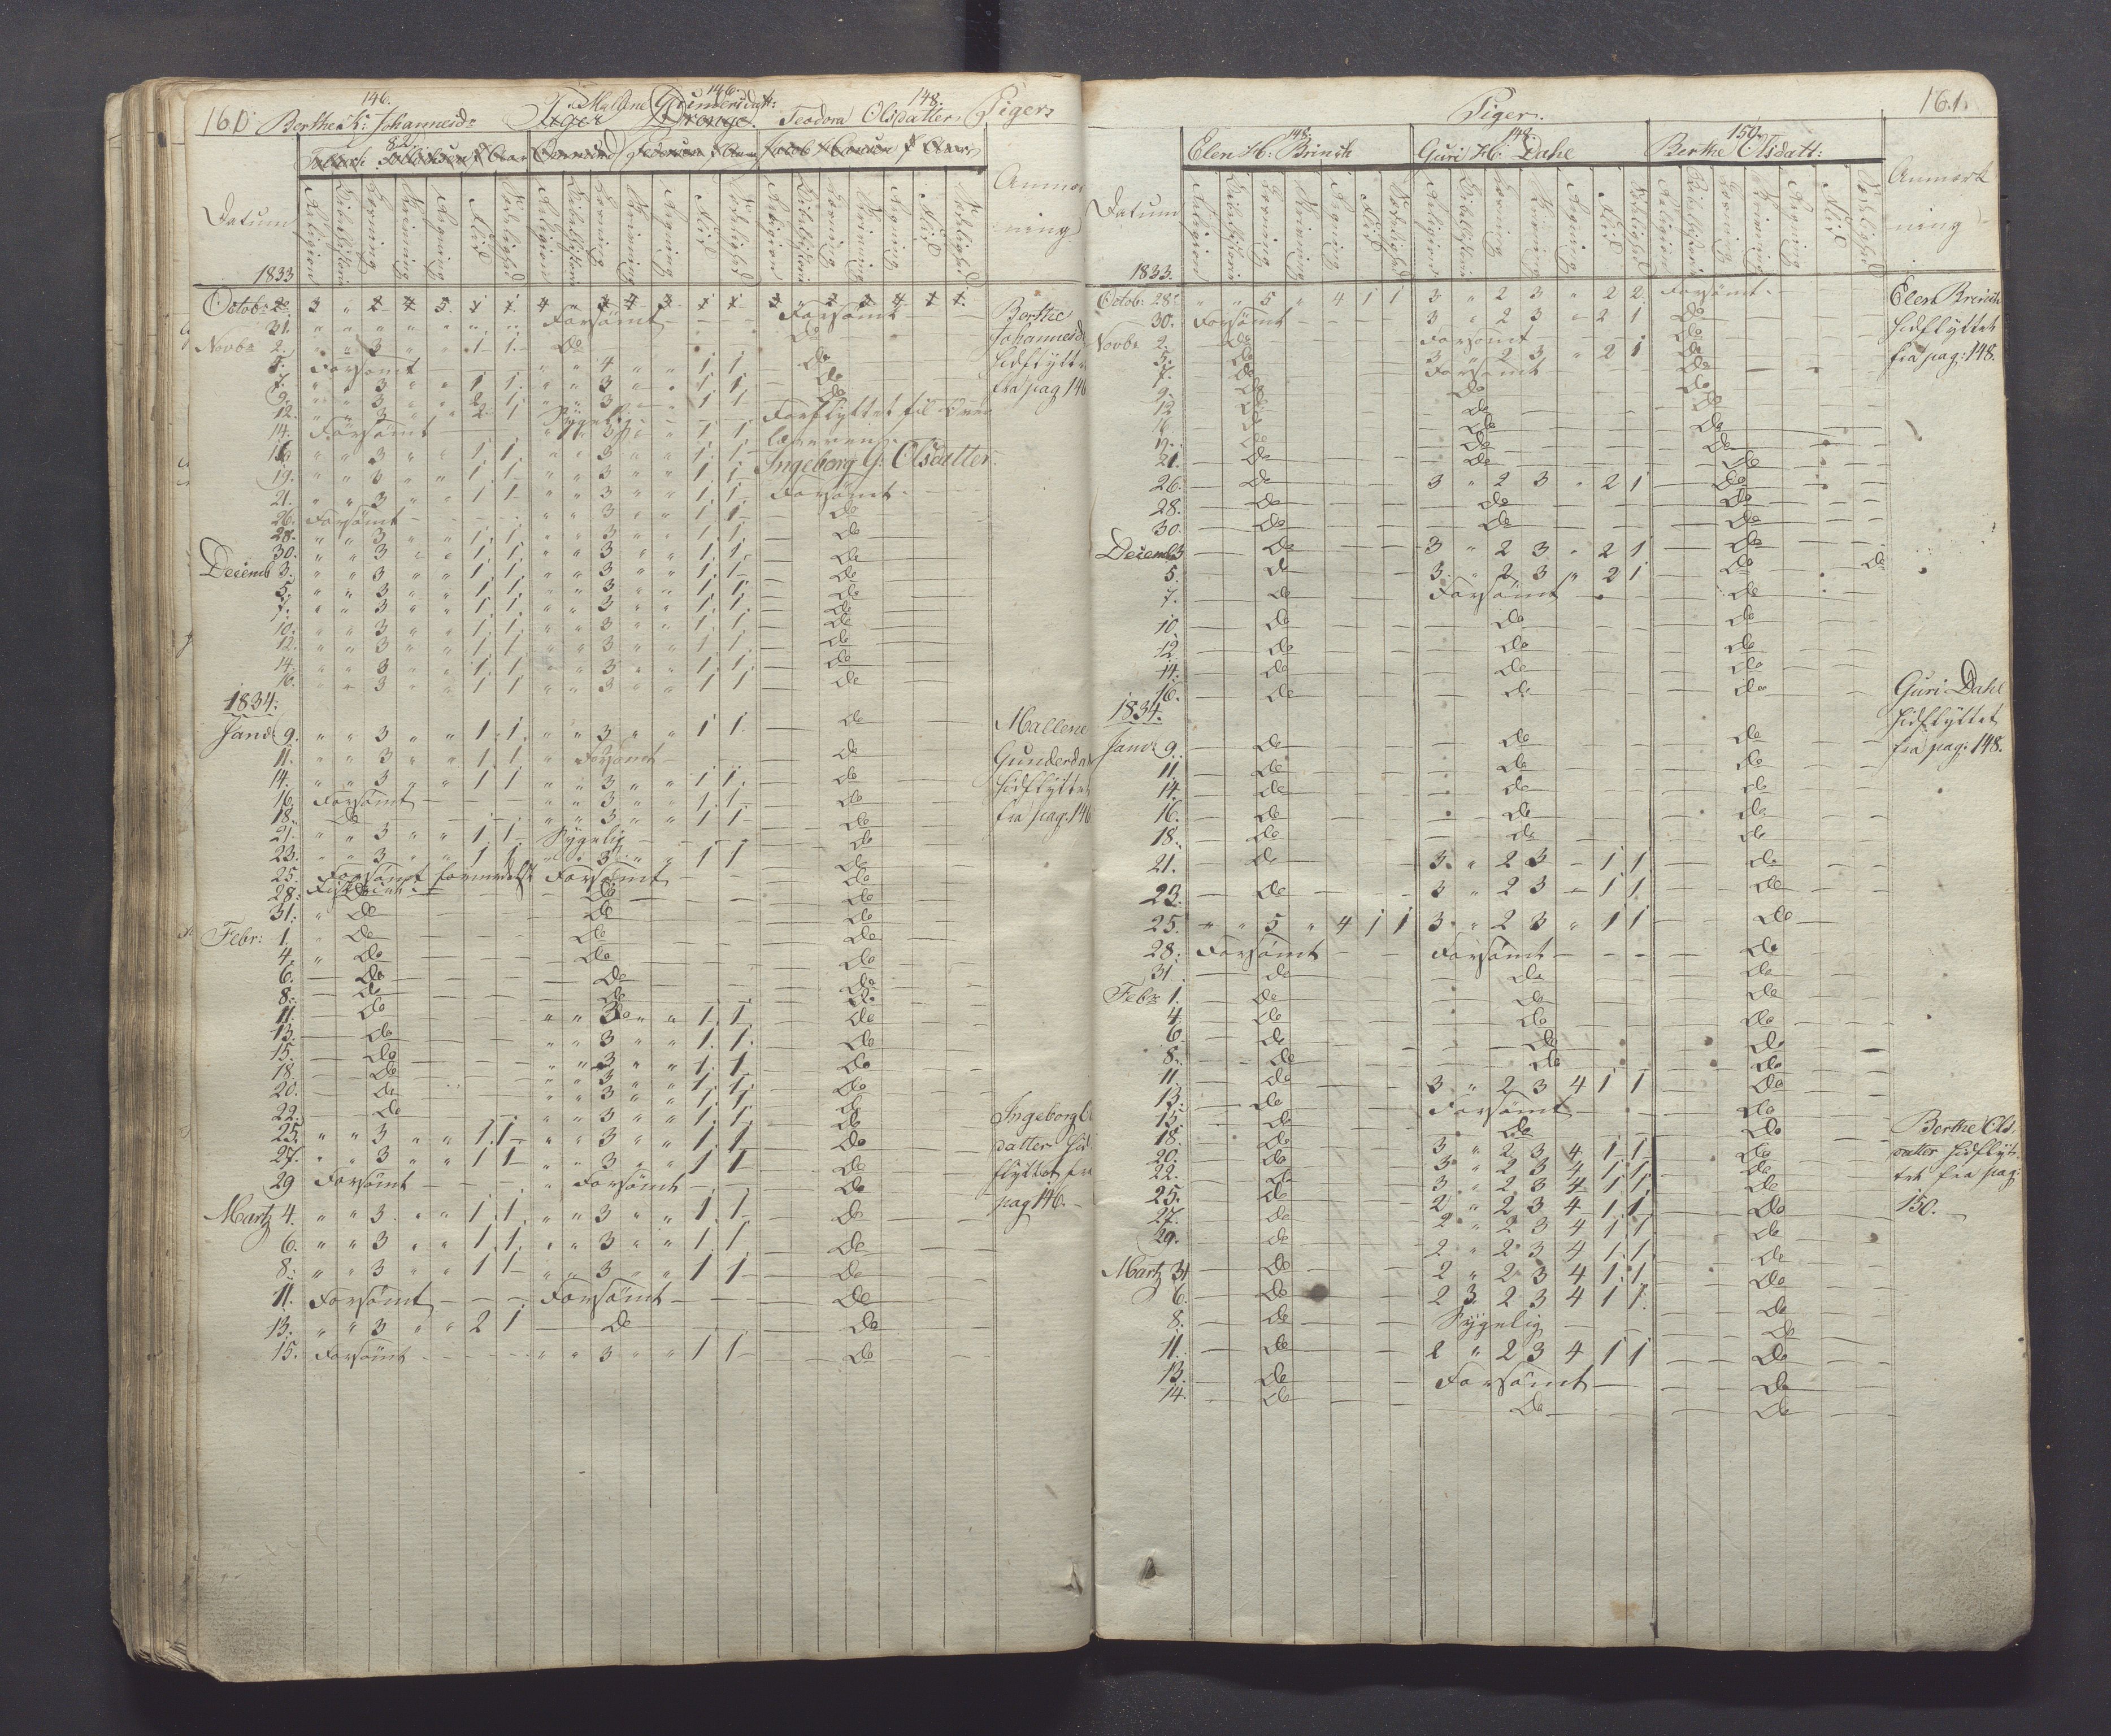 160
146.
Berthe K: Johannesd:
146.
Mallene Gundersdatt:
148.
Teodora Olsdatter
Piger
82
Datum
Religion
Bibelhistorie
Læsning
Skrivning
Regning
Flid
Sædelighed
Religion
Bibelhistorie
Læsning
Skrivning
Regning
Flid
Sædelighed
Religion
Bibelhistorie
Læsning
Skrivning
Regning
Flid
Sædelighed
Anmærk
ning
1833
31. " " " " " " " Forsömt — Forsömt —
Novbr 2. " " 3 " " 1 1 — do — do
5. Forsömt — " " 4 " " 1 1 — do
7. " " 3 " " 1 1. " " 3 " " 1 1. — do
9. " " 3 " " 2 1. " " 3 " " 1 1 — do
12. " " 3 " " 2 1 Sygelig — Forflyttet til Over
14. Forsömt — " " 3 " " 1 1 læreren.
16. " " 3 " " 1. 1. " " 3 " " 1. 1. Ingeborg G: Olsdatter.
19. " " 3 " " 1. 1. " " 3 " " 1 1
21. " " 3 " " 1 1 " " 3 " " 1. 1. Forsömt —
26. Forsömt — " " 3 " " 1 1 — do
28. " " 3 " " 1. 1. " " 3 " " 1. 1. — do
30. " " 3 " " 1. 1. " " 3 " " 1. 1. — do
Decemb 3. " " 3 " " 1. 1. " " 3 " " 1. 1 — do
5. " " 3 " " 1. 1. " " 3 " " 1. 1. — do
7. " " 3 " " 1. 1. " " 3 " " 1. 1. — do
10. " " 3 " " 1. 1. " " 3 " " 1. 1. — do
12. " " 3 " " 1. 1. " " 3 " " 1 1. — do
14. " " 3 " " 1. 1. " " 3 " " 1. 1. — do
16. " " 3 " " 1 1 " " 3 " " 1 1 — do
1834.
Janr 9. " " 3 " " 1. 1. " " 3 " " 1 1. — do
11. " " 3 " " 1. 1. " Forsömt — do
14. " " 3 " " 1 1 " " 3 " " 1 1. — do
16. Forsömt — " " 3 " " 1. 1. — do
18. — do — " " 3 " " 1 1 — do
21. " " 3 " " 1. 1. Sygelig — do
23. " " 3 " " 1 1 " " 3 " " 1 1 — do
25. Forsömt formedelst Forsömt — do
28. Fiskeriet. — do — do
31. " do — do — do
Febr: 1. " do — do — do
4. " do — do — do
6. — do — do — do
8. — do — do — do
11. — do — " " 3 " " 1. 1. — do
13. — do — " " 3 " " 1. 1. — do
15. — do — " " 3 " " 1. 1. — do
18. — do — " " 3 " " 1. 1. — do
20. — do — " " 3 " " 1. 1. — do
22. — do — " " 3 " " 1. 1. — do
25. " " 3 " " 1. 1 — " " 3 " " 1. 1. — do
27. " " 3 " " 1 1 — " " 3 " " 1 1 — do
29 Forsömt — " Forsömt — do
Martz 4. " " 3 " " 1. 1. " " 3 " " 1. 1. — do
6. " " 3 " " 1. 1. " " 3 " " 1. 1. — do
8. " " 3 " " 1 1 — " " 3 " " 1 1 — do
11. Forsömt — Forsömt — do
13. " " 3 " " 2 1 — do — do
15. Forsömt — " " 3 " " 1 1 — do
Berthe
Johannesd
hidflytt
fra pag 146
Mallene
Gundersda
hidflyttet
fra pag: 146
Ingeborg
datter hid
flyttet fra
pag 146. —
161.
Piger.
148.
Elen H: Brinch
148.
Guri H: Dahl
150.
Berthe Olsdatt:
Datum
Religion
Bibelhistorie
Læsning
Skrivning
Regning
Flid
Sædelighed
Religion
Bibelhistorie
Læsning
Skrivning
Regning
Flid
Sædelighed
Religion
Bibelhistorie
Læsning
Skrivning
Regning
Flid
Sædelighed
Anmærk
ning
1833.
Octob: 28. " " 5 " 4 1 1 3 " 2 3 " 2 2. Forsömt —
30. Forsömt — 3 " 2 3 " 2 1 do
Novbr 2. — do — Forsömt — do
5. — do — 3 " 2 3 " 2 1 do
7. — do — Forsömt — do
9. — do — do — do
12 — do — do — do
16. — do — do — do
19. — do — do — do
21. — do — do — do
26. — do — 3 " 2 3 " 2 1 — do
28. — do — do — do
30. — do — do — do
Decemb 3 — do — 3 " 2 3 " 2 1 — do
5. — do — 3. " 2 3 " 2 1 — do — do
7. — do — Forsömt — do
10. — do — do — do
12 — do — do — do
14. — do — do — do
16. — do — do — do
1834.
Janr 9. — do — do — do
11. — do — do — do
14. — do — do — do
16. — do — do — do
18. — do — do — do
21. — do — 3. " 2 3 — 1 1 — do
23. — do — 3 " 2 3 — 1 1 — do
25. " " 5 " 4 1 1 3 " 2 3 " 1 1 — do
28. Forsömt — Forsömt — do
31 — do — do — do
Febr 1. — do — do — do
4. — do — do — do
6. — do — do — do
8. — do — do — do
11. — do — 3 " 2 3 4 1 1 — do
13. — do — Forsömt — do
15. — do — do — do
18. — do — 3 " 2 3 4 1 1 — do
20. — do — 3 " 2 3 4 1 1 — do
22. — do — 3 " 2 3 4 1 1 — do
25. — do — 2 " 2 3 4 1. 1. — do
27. — do — 2 " 2 3 4 1 1 — do
29. — do — 2 " 2 3 4 1. 1. — do
Martz — do — 2 " 2 3 4 1. 1. — do
6. — do — 2 3 2 3 4 1 1. — do
8. — do — Sygelig — do
11. — do — 2 " 2 3 4 1 1 — do
13. — do — Forsömt — do
14. — do — do — do
Elen Brinch
hidflyttet
fra pag: 148.
Guri Dahl
hidflyttet
fra pag: 148.
Berthe Ols-
datter hidflyt-
tet fra pag:
150. —